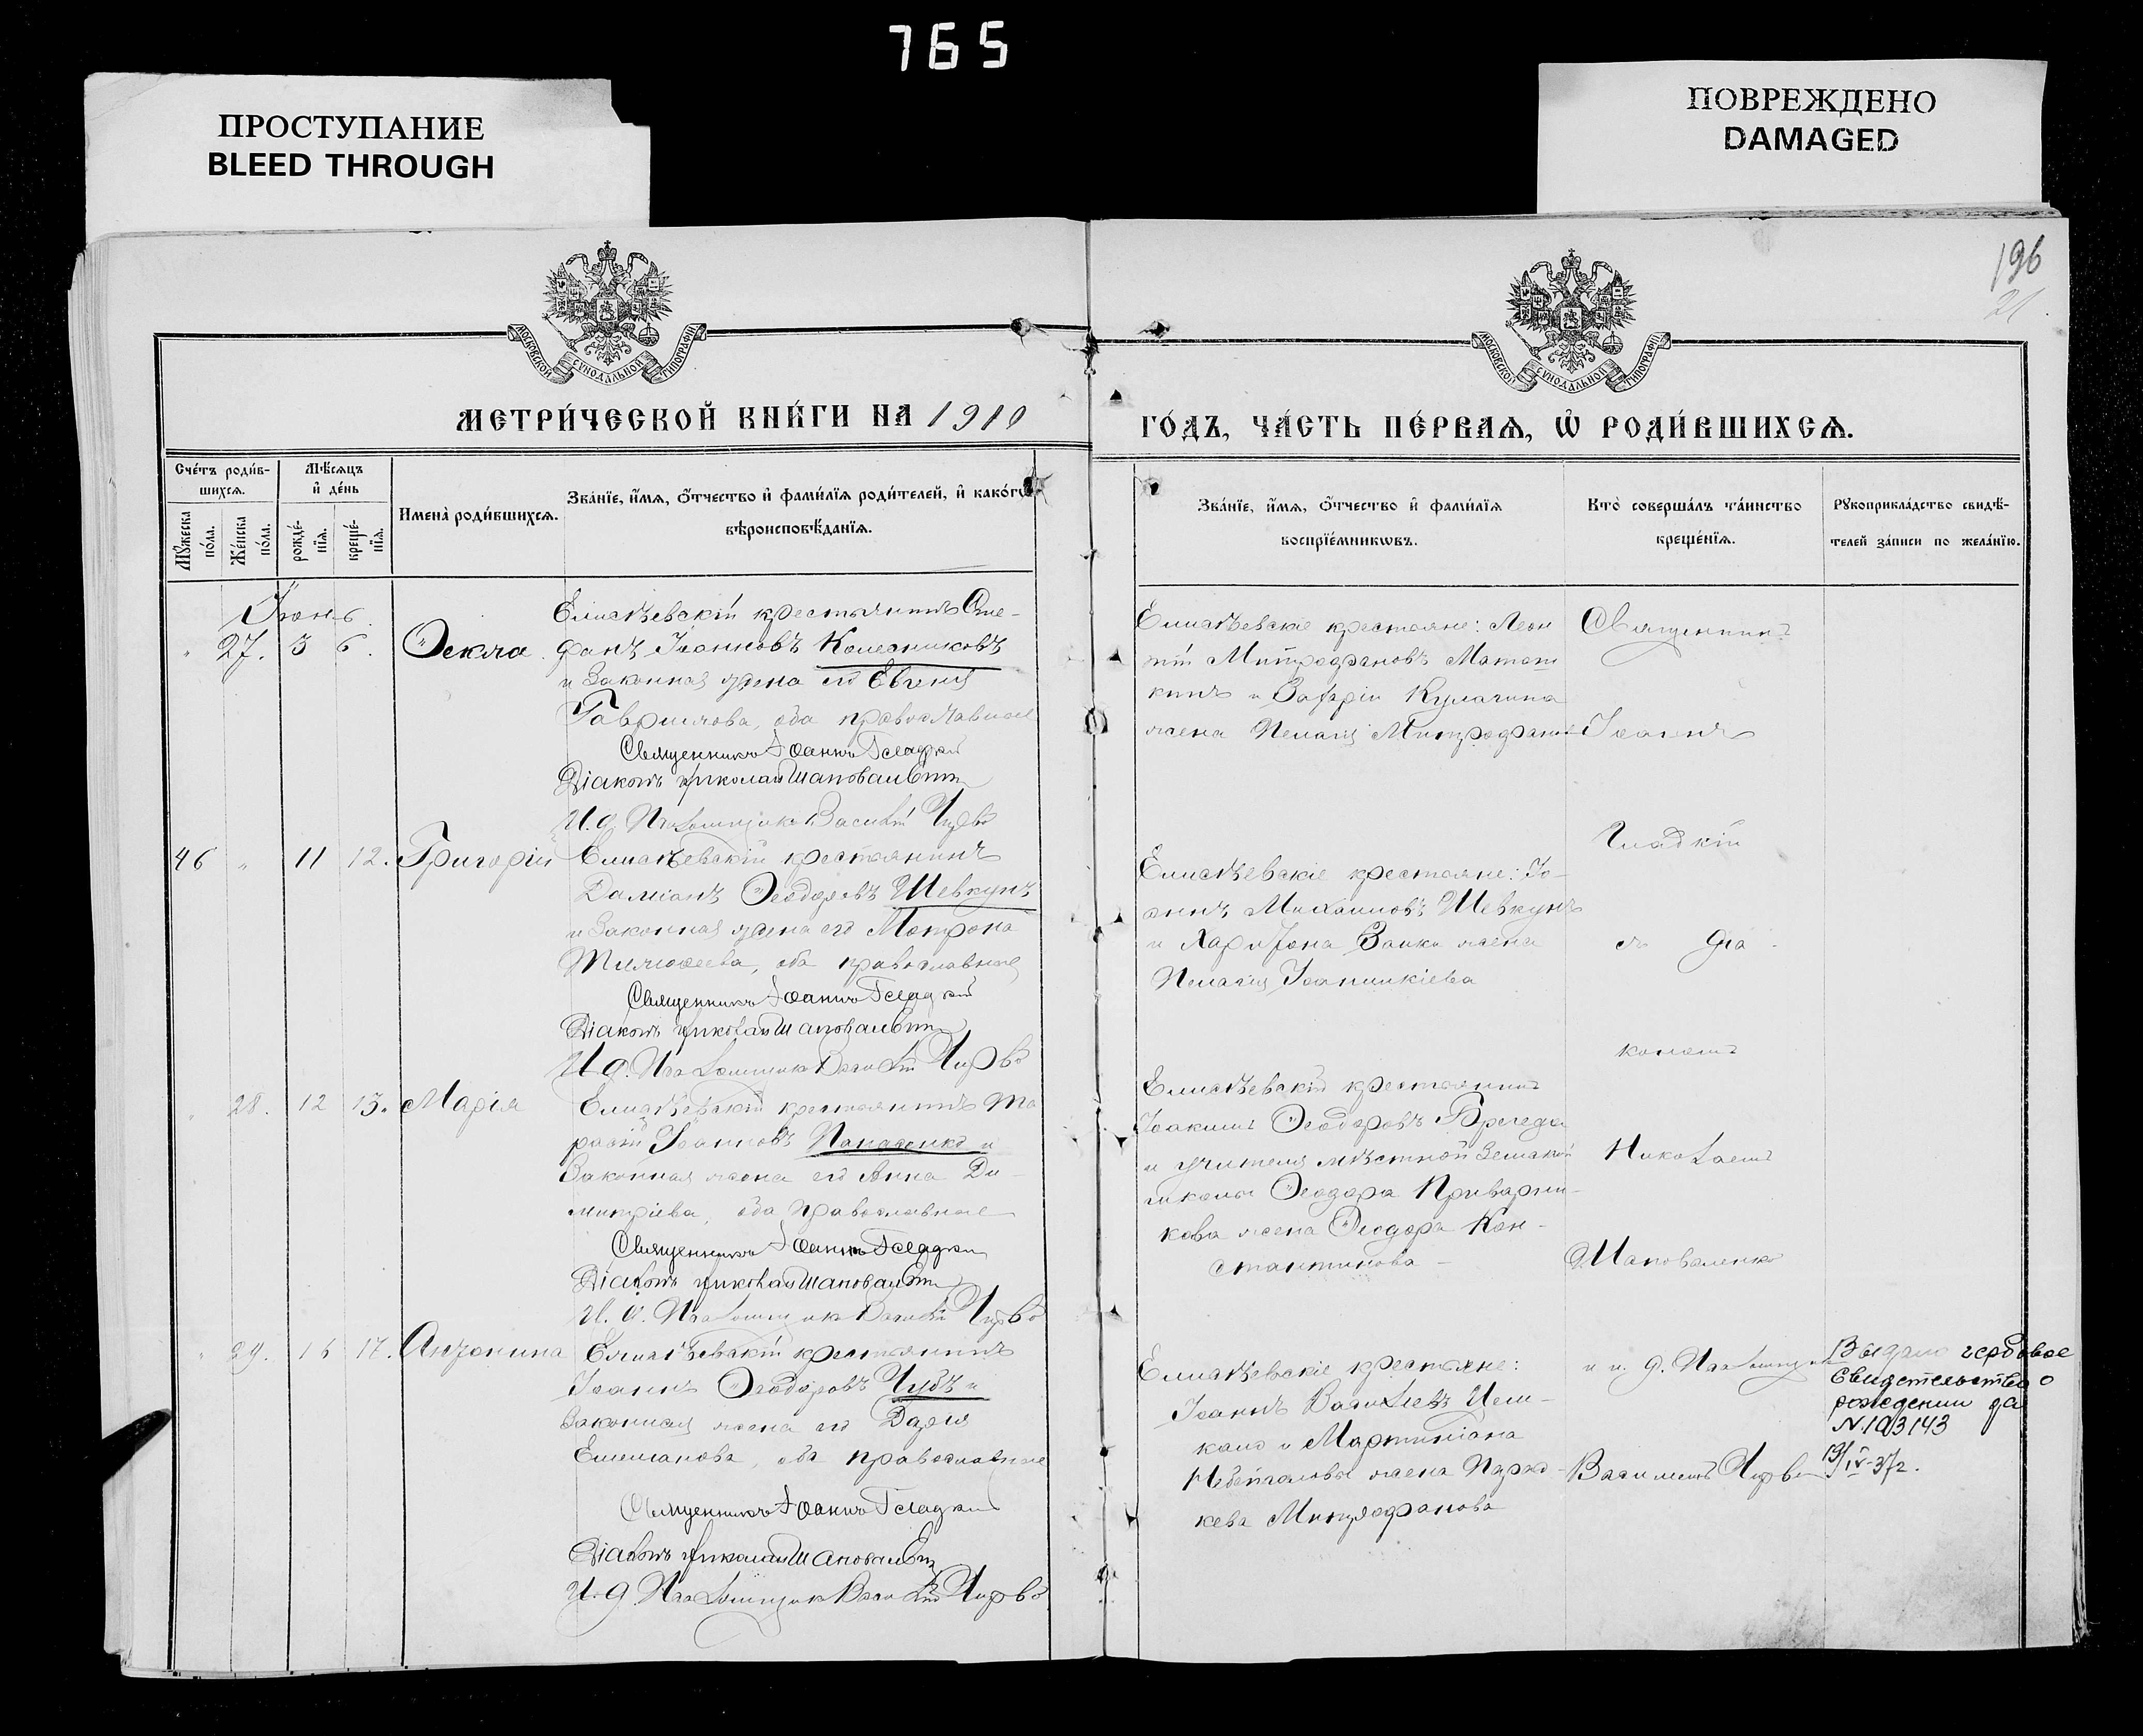 765
ПРОСТУПАНИЕ
BLEED THROUGH
ПОВРЕЖДЕНО
DAMAGED
196
21.
МОСКОВСКОЙ СѴНОДАЛЬНОЙ ТИПОГРАФІИ
МОСКОВСКОЙ СѴНОДАЛЬНОЙ ТИПОГРАФІИ
МЕТРИ́ЧЕСКОЙ КНИ́ГИ НА 1910
ГО́ДЪ, ЧА́СТЬ ПЕ́РВАѦ, Ѡ РОДИ́ВШИХСѦ.
Сче́тъ роди́в-
шихсѧ.
Мѣ́сѧцъ
и҆ де́нь
Мꙋ́жеска по́ла.
Же́нска по́ла.
рожде́-нїѧ.
креще́-нїѧ.
Имена̀ роди́вшихсѧ.
Зва́нїе, и҆́мѧ, ѻ҆́тчество и҆ фами́лїѧ роди́телей, и҆ како́гѡ
вѣроисповѣ́данїѧ.
Зва́нїе, и҆́мѧ, ѻ҆́тчество и҆ фами́лїѧ
воспрїе́мникѡвъ.
Кто̀ соверша́лъ та́инство
креще́нїѧ.
Рꙋкоприкла́дство свидѣ́-
телей за́писи по жела́нїю.
Іюнь
" 27. 3 6. Ѳекла
Елисѣевскій крестьянинъ Сте-
фанъ Іоанновъ Колесниковъ
и законная жена его Евгенія
Гаврилова, оба православные
Священникъ Іоаннъ Гладкій
Діаконъ Николай Шаповаленко
И. д. Псаломщика Василій Чирва
Елисѣевскіе крестьяне: Леон
тій Митрофановъ
кинъ и Захарія Кулагина
жена Пелагія Митрофано
Священникъ
Іоаннъ
Гладкій
съ діа-
кономъ
Николаемъ
Шаповаленко
46 " 11 12. Григорій
Елисѣевскій крестьянинъ
Даміанъ Ѳеодоровъ Шевкунъ
и законная жена его Матрона
Тимоѳеева, оба православные
Священникъ Іоаннъ Гладкій
Діаконъ Николай Шаповаленко
И. д. Псаломщика Василій Чирва
Елисѣевскіе крестьяне: Іо-
аннъ Михаиловъ Шевкунъ
и Харитона Заики жена
Пелагія Іоанникіева
" 28. 12 13. Марія
Елисѣевскій крестьянинъ Та
расій Іоанновъ Панасенко и
законная жена его Анна Ди-
митріева, оба православные
Священникъ Іоаннъ Гладкій
Діаконъ Николай Шаповаленко
И. д. Псаломщика Василій Чирва
Елисѣевскій крестьянинъ
Іоакимъ Ѳеодоровъ Брегеда
и учителя мѣстной земской
школы Ѳеодора Приварни-
кова жена Ѳеодора Кон-
стантинова
" 29. 16 17. Антонина
Елисѣевскій крестьянинъ
Іоаннъ Ѳеодоровъ Чубъ и
законная жена его Дарія
Емеліанова, оба православные
Священникъ Іоаннъ Гладкій
Діаконъ Николай Шаповаленко
И. д. Псаломщика Василій Чирва
Елисѣевскіе крестьяне:
Іоаннъ Васильевъ
и Мартиніана
жена Параs-
кева Митрофанова
и и. д. Псаломщика
Василіемъ Чирвою
Выдано гербовое
Свидетельство о
рождении за
N.103143
19/IV-37г.